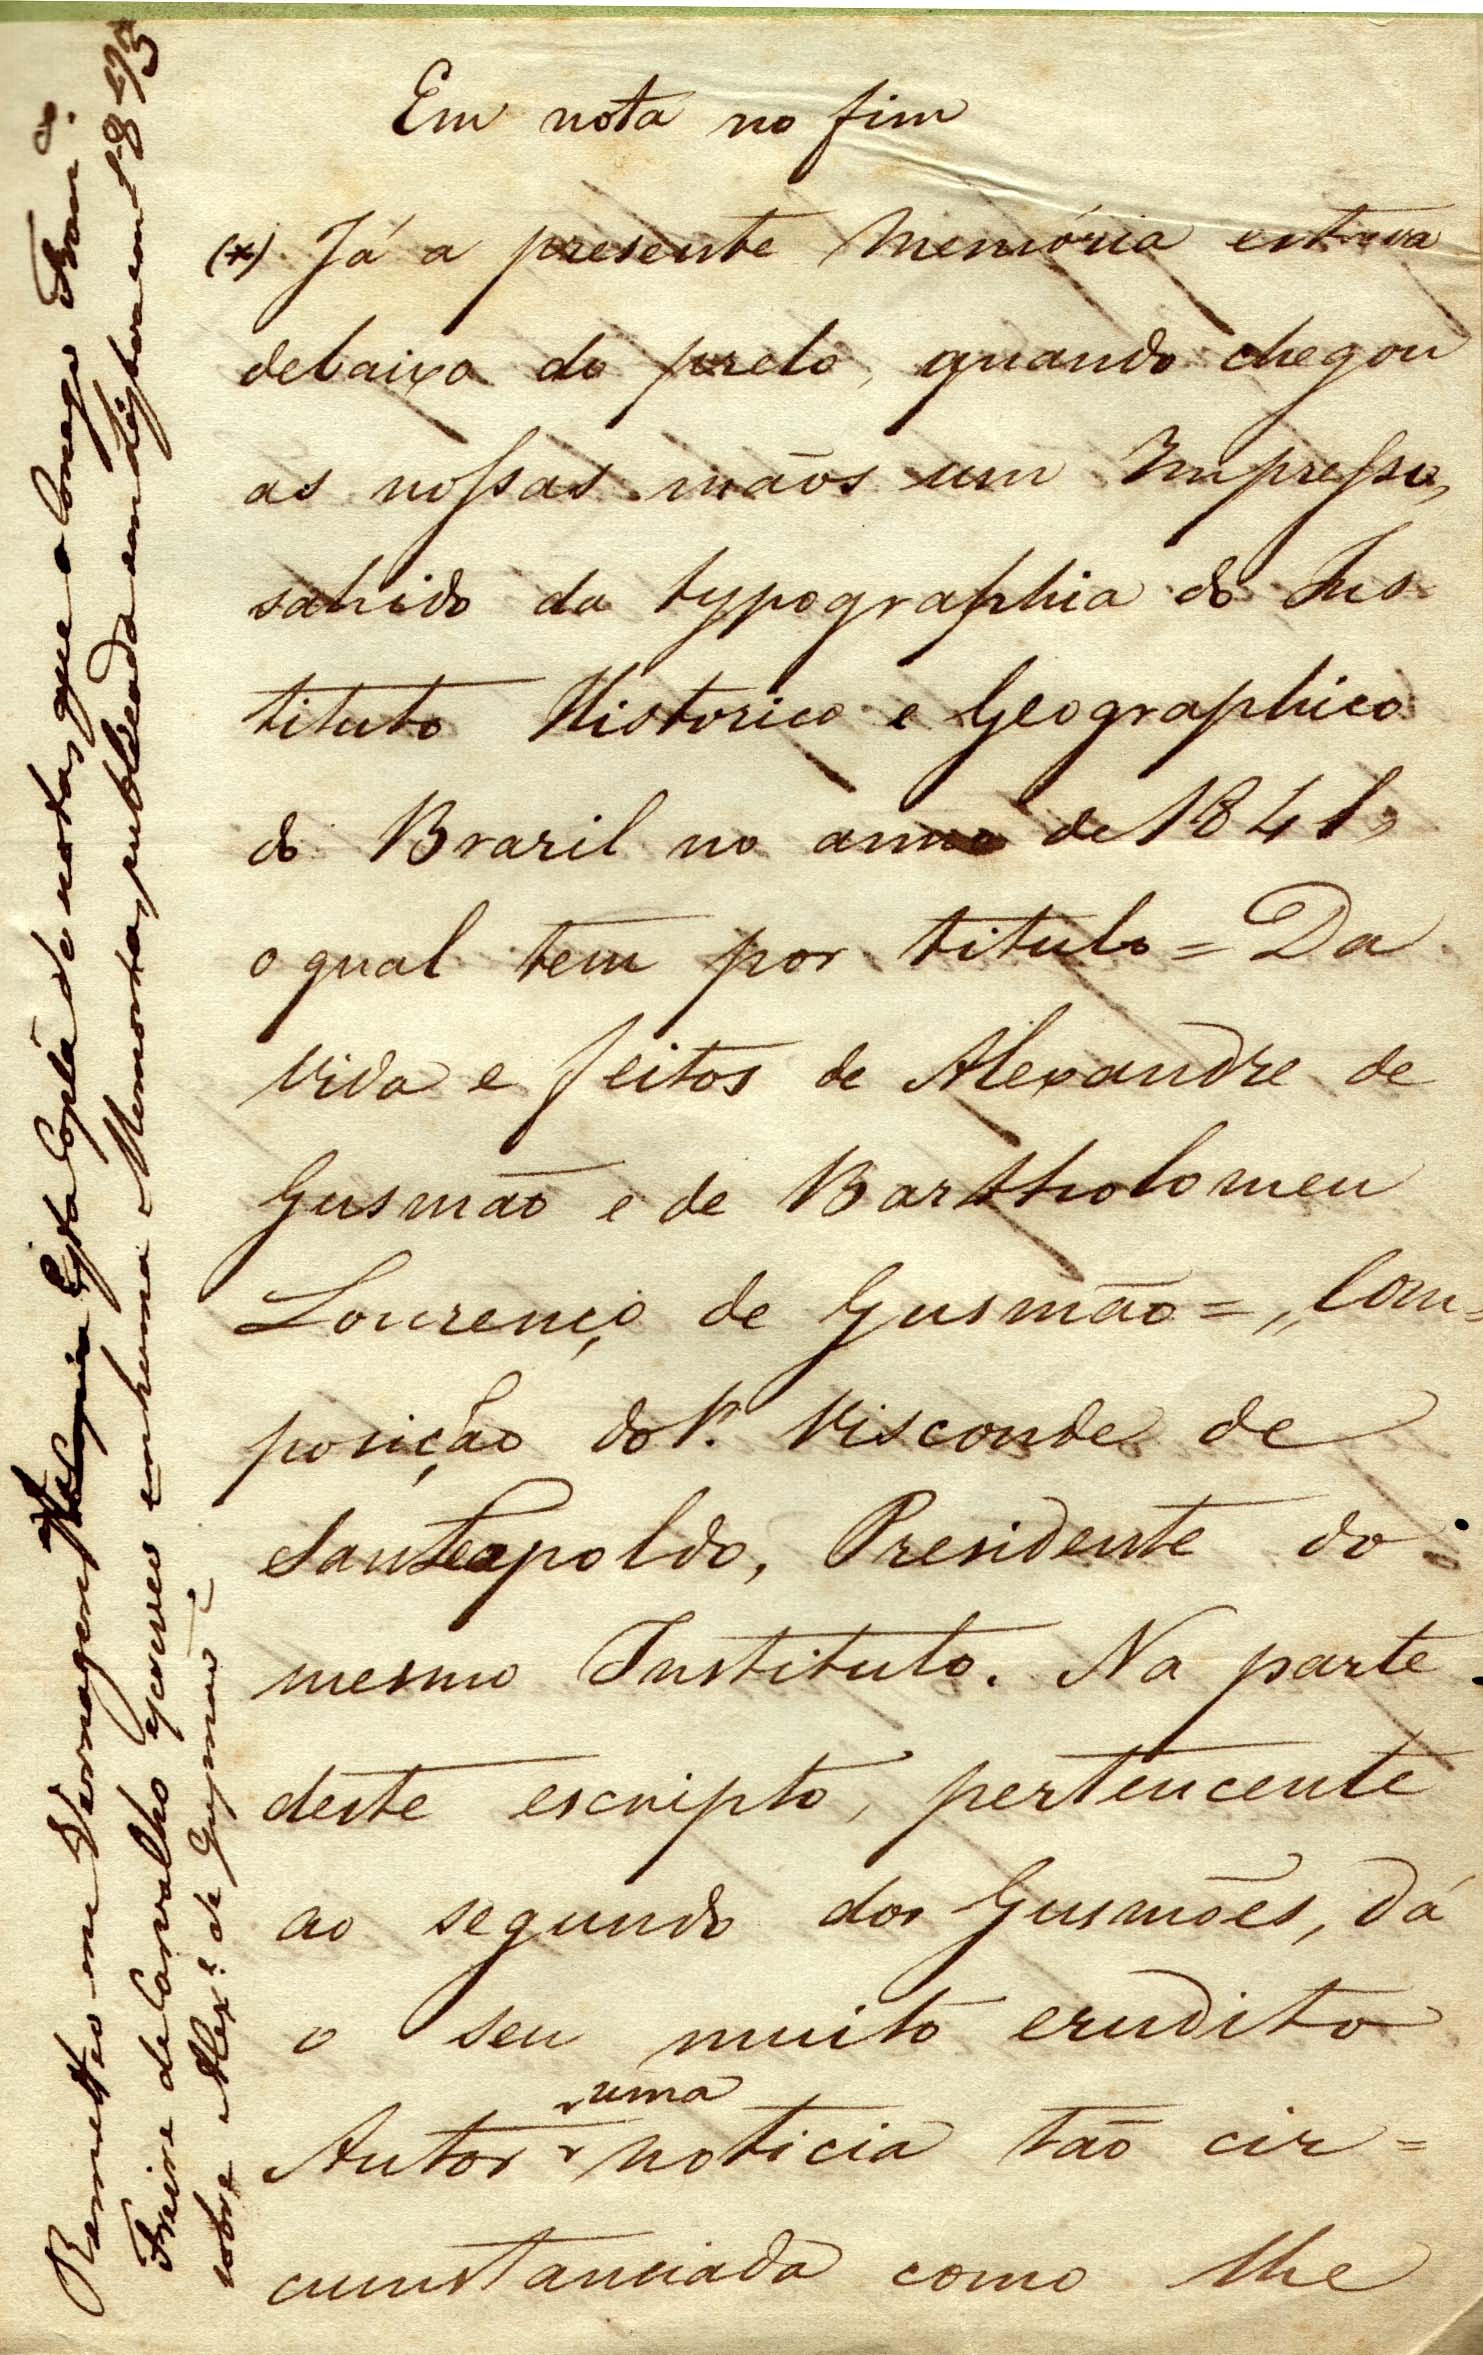 Em nota no fim
(*) Já a presente Memória estava
debaixo do prelo, quando chegou
as nossas mãos um Impresso,
sahido da typographia do Ins
tituto Historico e Geographico
do Brazil no anno de 1841,
o qual tem por titulo = Da
vida e feitos de Alexandre de
Gusmão e de Bartholomeu
Lourenço de Gusmão = ,, Com=
posição do Sr. Visconde de
San Leopoldo, Presidente do
mesmo Instituto. Na parte
deste escripto, pertencente
ao segundo dos Gusmões, dá
o seu muito erudito
uma
Autor noticia tão cir=
cunstanciada como lhe
Remetteo-me Varnhagem Esta Copia de notas que o Conego Franco.
Freire de Carvalho escreveo em huma Memoria, publicada em Lisboa em
sobre Alexe. de Gusmão